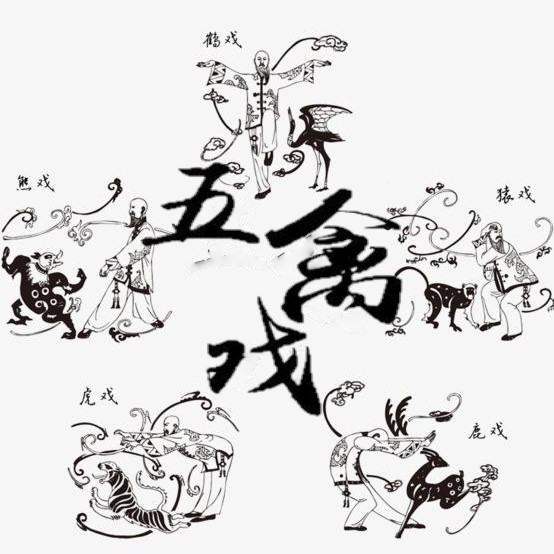 鹤戏
熊戏
猿戏
五禽戏
虎戏
鹿戏